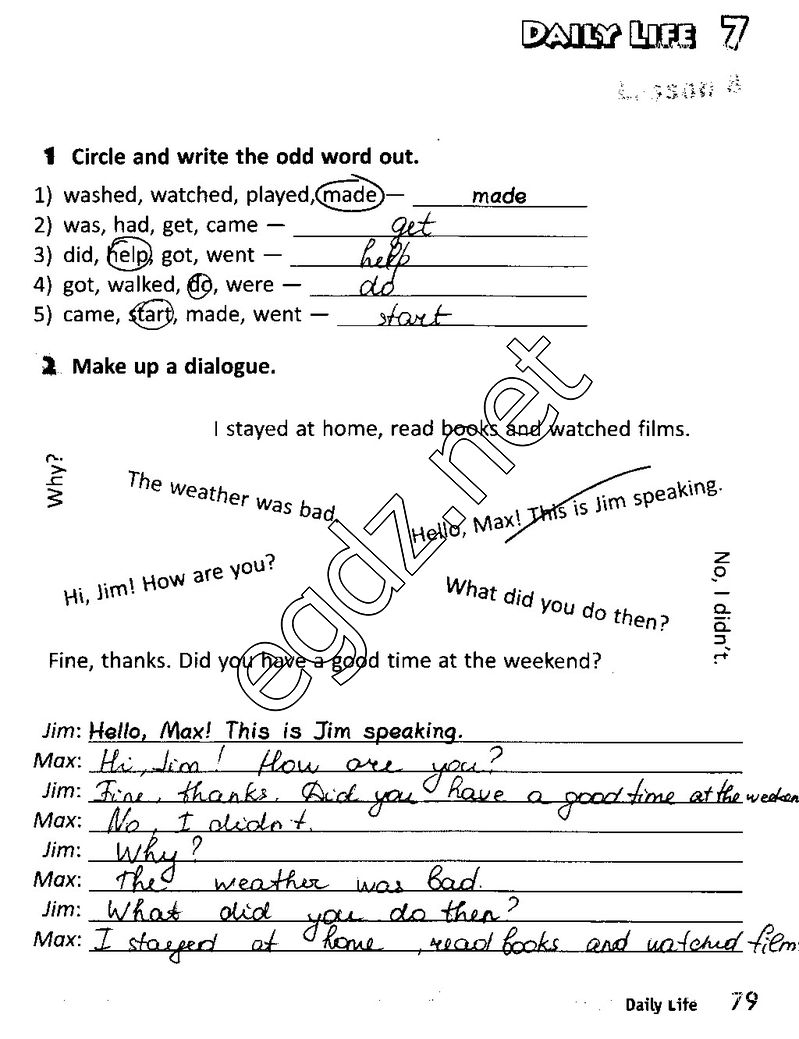 DAILY LIFE 7
Lesson 8
1 Circle and write the odd word out.
1) washed, watched, played, made — made
2) was, had, get, came — get
3) did, help, got, went — help
4) got, walked, do, were — do
5) came, start, made, went — start
2 Make up a dialogue.
I stayed at home, read books and watched films.
Why?
The weather was bad.
Hello, Max! This is Jim speaking.
Hi, Jim! How are you?
What did you do then?
No, I didn't.
Fine, thanks. Did you have a good time at the weekend?
egdz.net
Jim: Hello, Max! This is Jim speaking.
Max: Hi, Jim! How are you?
Jim: Fine, thanks. Did you have a good time at the weeken
Max: No, I didn't.
Jim: Why?
Max: The weather was bad.
Jim: What did you do then?
Max: I stayed at home, read books and watched films
Daily Life 79